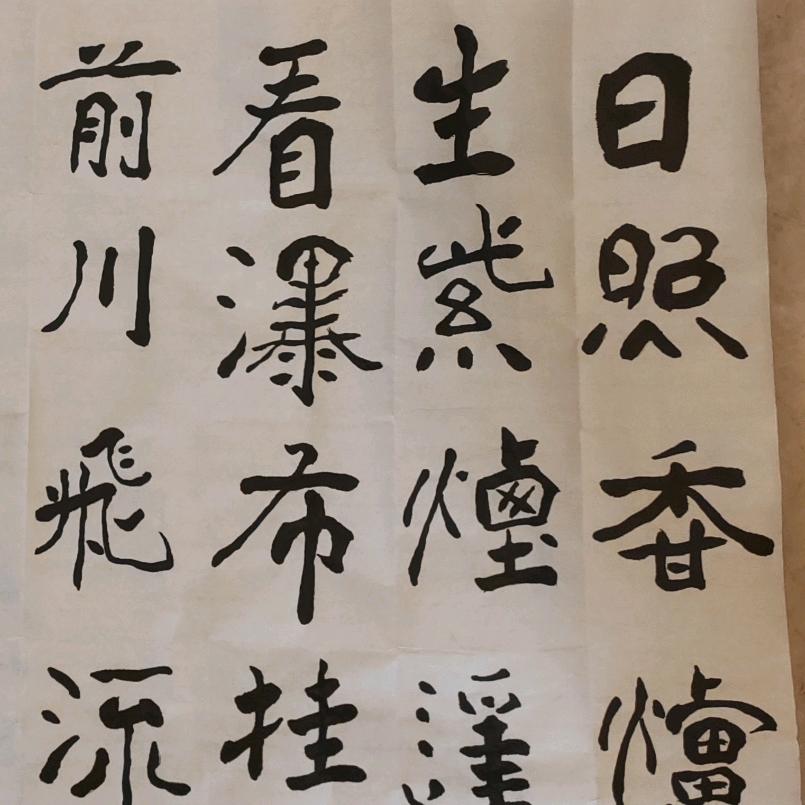 日照香爐
生紫煙遙
看瀑布挂
前川飛流